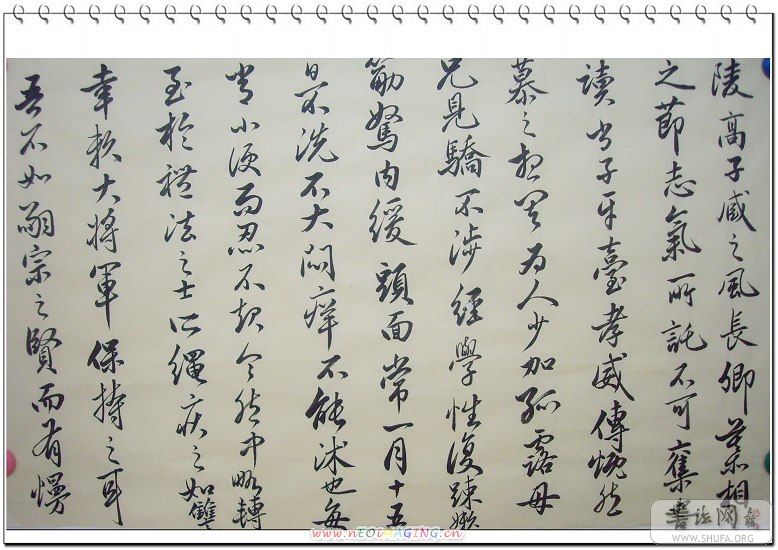 陵高子臧之風長卿慕相
之節志氣所託不可奪
讀尚子平臺孝威傳慨然
慕之想其為人少加孤露母
兄見驕不涉經學性復疎嬾
筋駑肉緩頭面常一月十五
日不洗不大悶癢不能沐也每
常小便而忍不起令中略轉
至於禮法之士所繩疾之如讎
幸賴大將軍保持之耳
吾不如嗣宗之賢而有慢
http://www.nEOiMAGING.cn
書法网
WWW.SHUFA.ORG